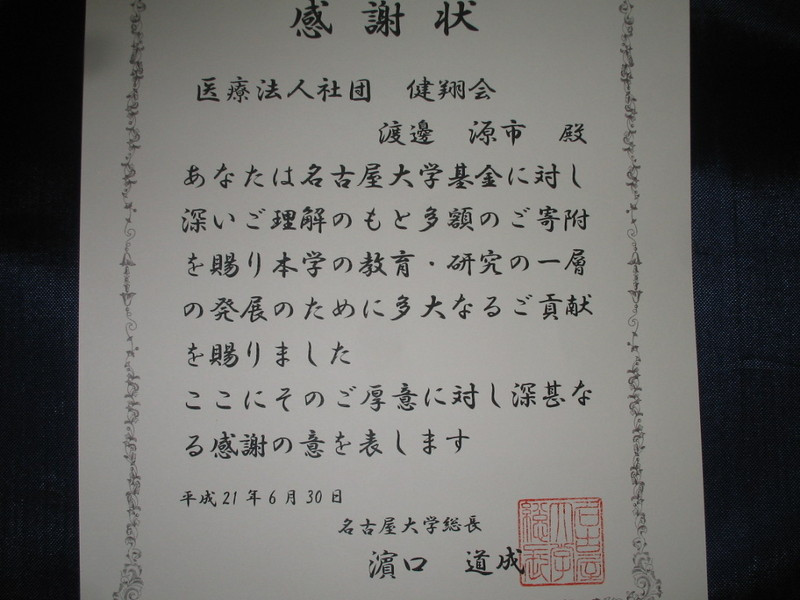 感謝状
医療法人社団 健翔会
渡邊 源市 殿
あなたは名古屋大学基金に対し
深いご理解のもと多額のご寄附
を賜り本学の教育・研究の一層
の発展のために多大なるご貢献
を賜りました
ここにそのご厚意に対し深甚な
る感謝の意を表します
平成21年6月30日
名古屋大学総長
濵口 道成